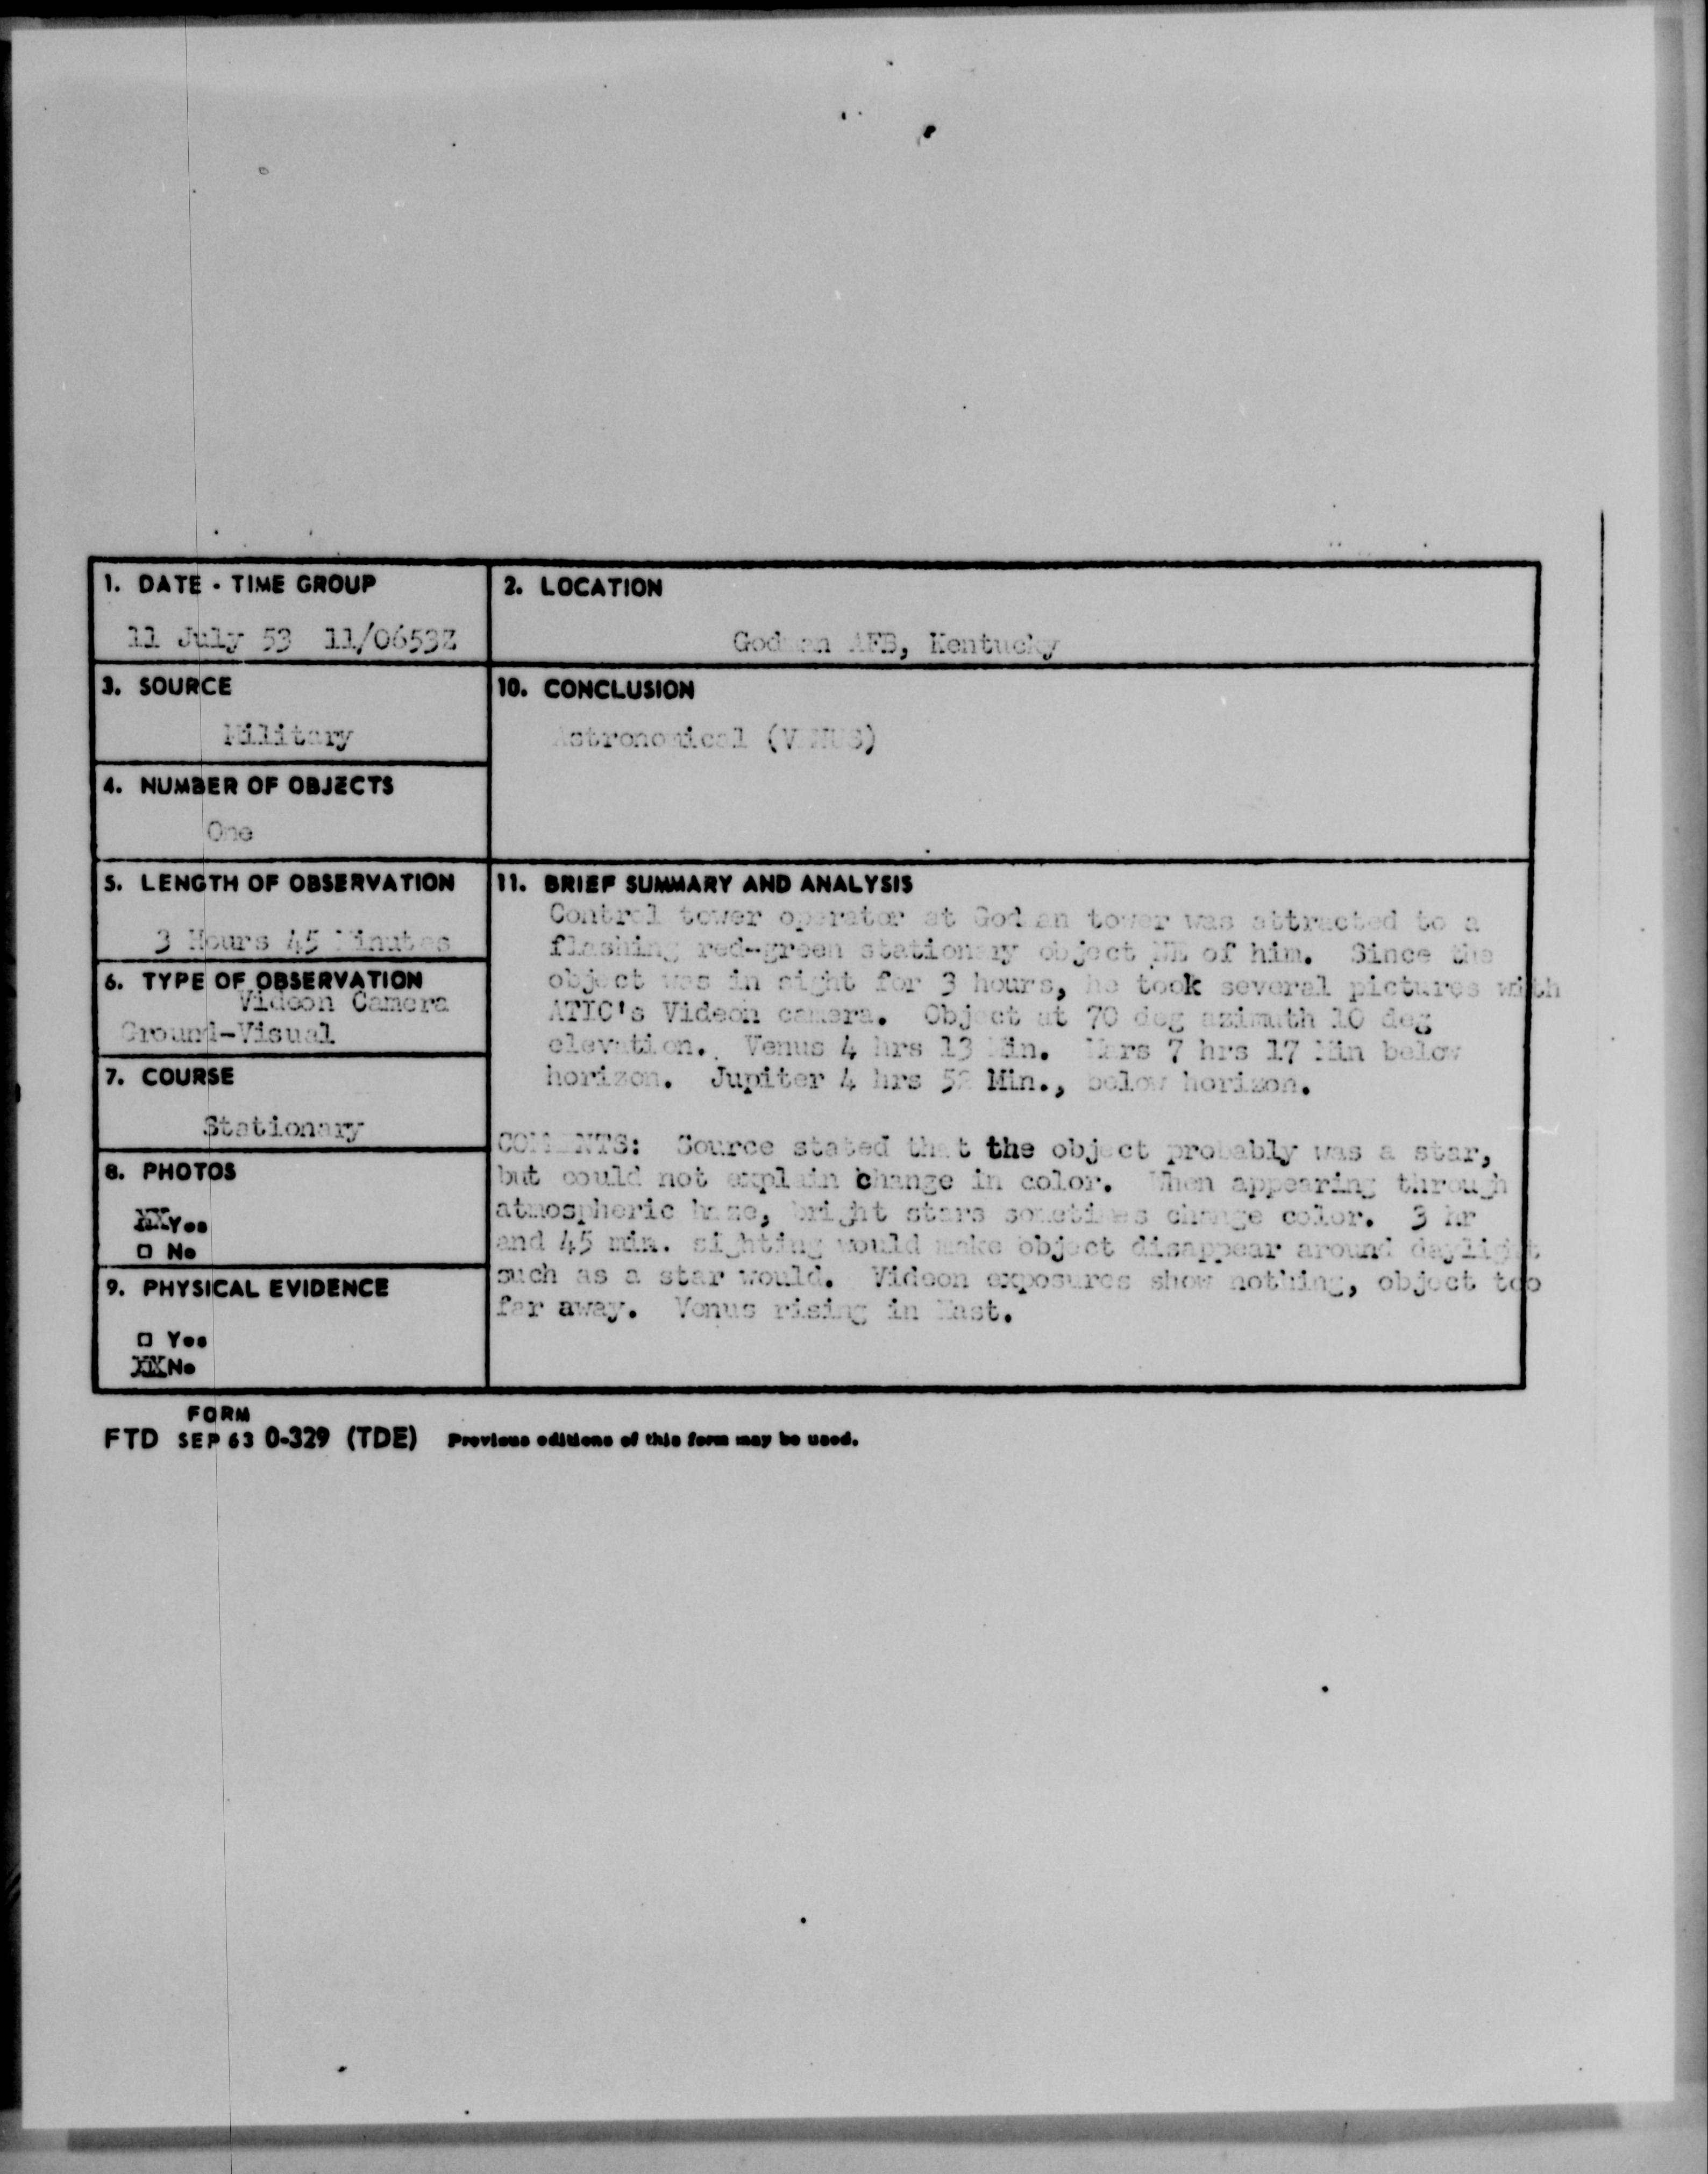 1. DATE - TIME GROUP
11 July 53 11/0653Z
2. LOCATION
Godman AFB, Kentucky
3. SOURCE
Military
10. CONCLUSION
Astronomical (VENUS)
4. NUMBER OF OBJECTS
One
5. LENGTH OF OBSERVATION
3 Hours 45 Minutes
11. BRIEF SUMMARY AND ANALYSIS
Control tower operator at Godman tower was attracted to a
flashing red-green stationary object NE of him. Since the
object was in sight for 3 hours, he took several pictures with
ATIC's Videon camera. Object at 70 deg azimuth 10 deg
elevation. Venus 4 hrs 13 Min. Mars 7 hrs 17 Min below
horizon. Jupiter 4 hrs 52 Min., below horizon.
COMMENTS: Source stated that the object probably was a star,
but could not explain change in color. When appearing through
atmospheric haze, bright stars sometimes change color. 3 hr
and 45 min. sighting would make object disappear around daylight
such as a star would. Videon exposures show nothing, object too
far away. Venus rising in East.
6. TYPE OF OBSERVATION
Videon Camera
Ground-Visual
7. COURSE
Stationary
8. PHOTOS
XX Yes
□ No
9. PHYSICAL EVIDENCE
□ Yes
XX No
FORM
FTD SEP 63 0-329 (TDE) Previous editions of this form may be used.